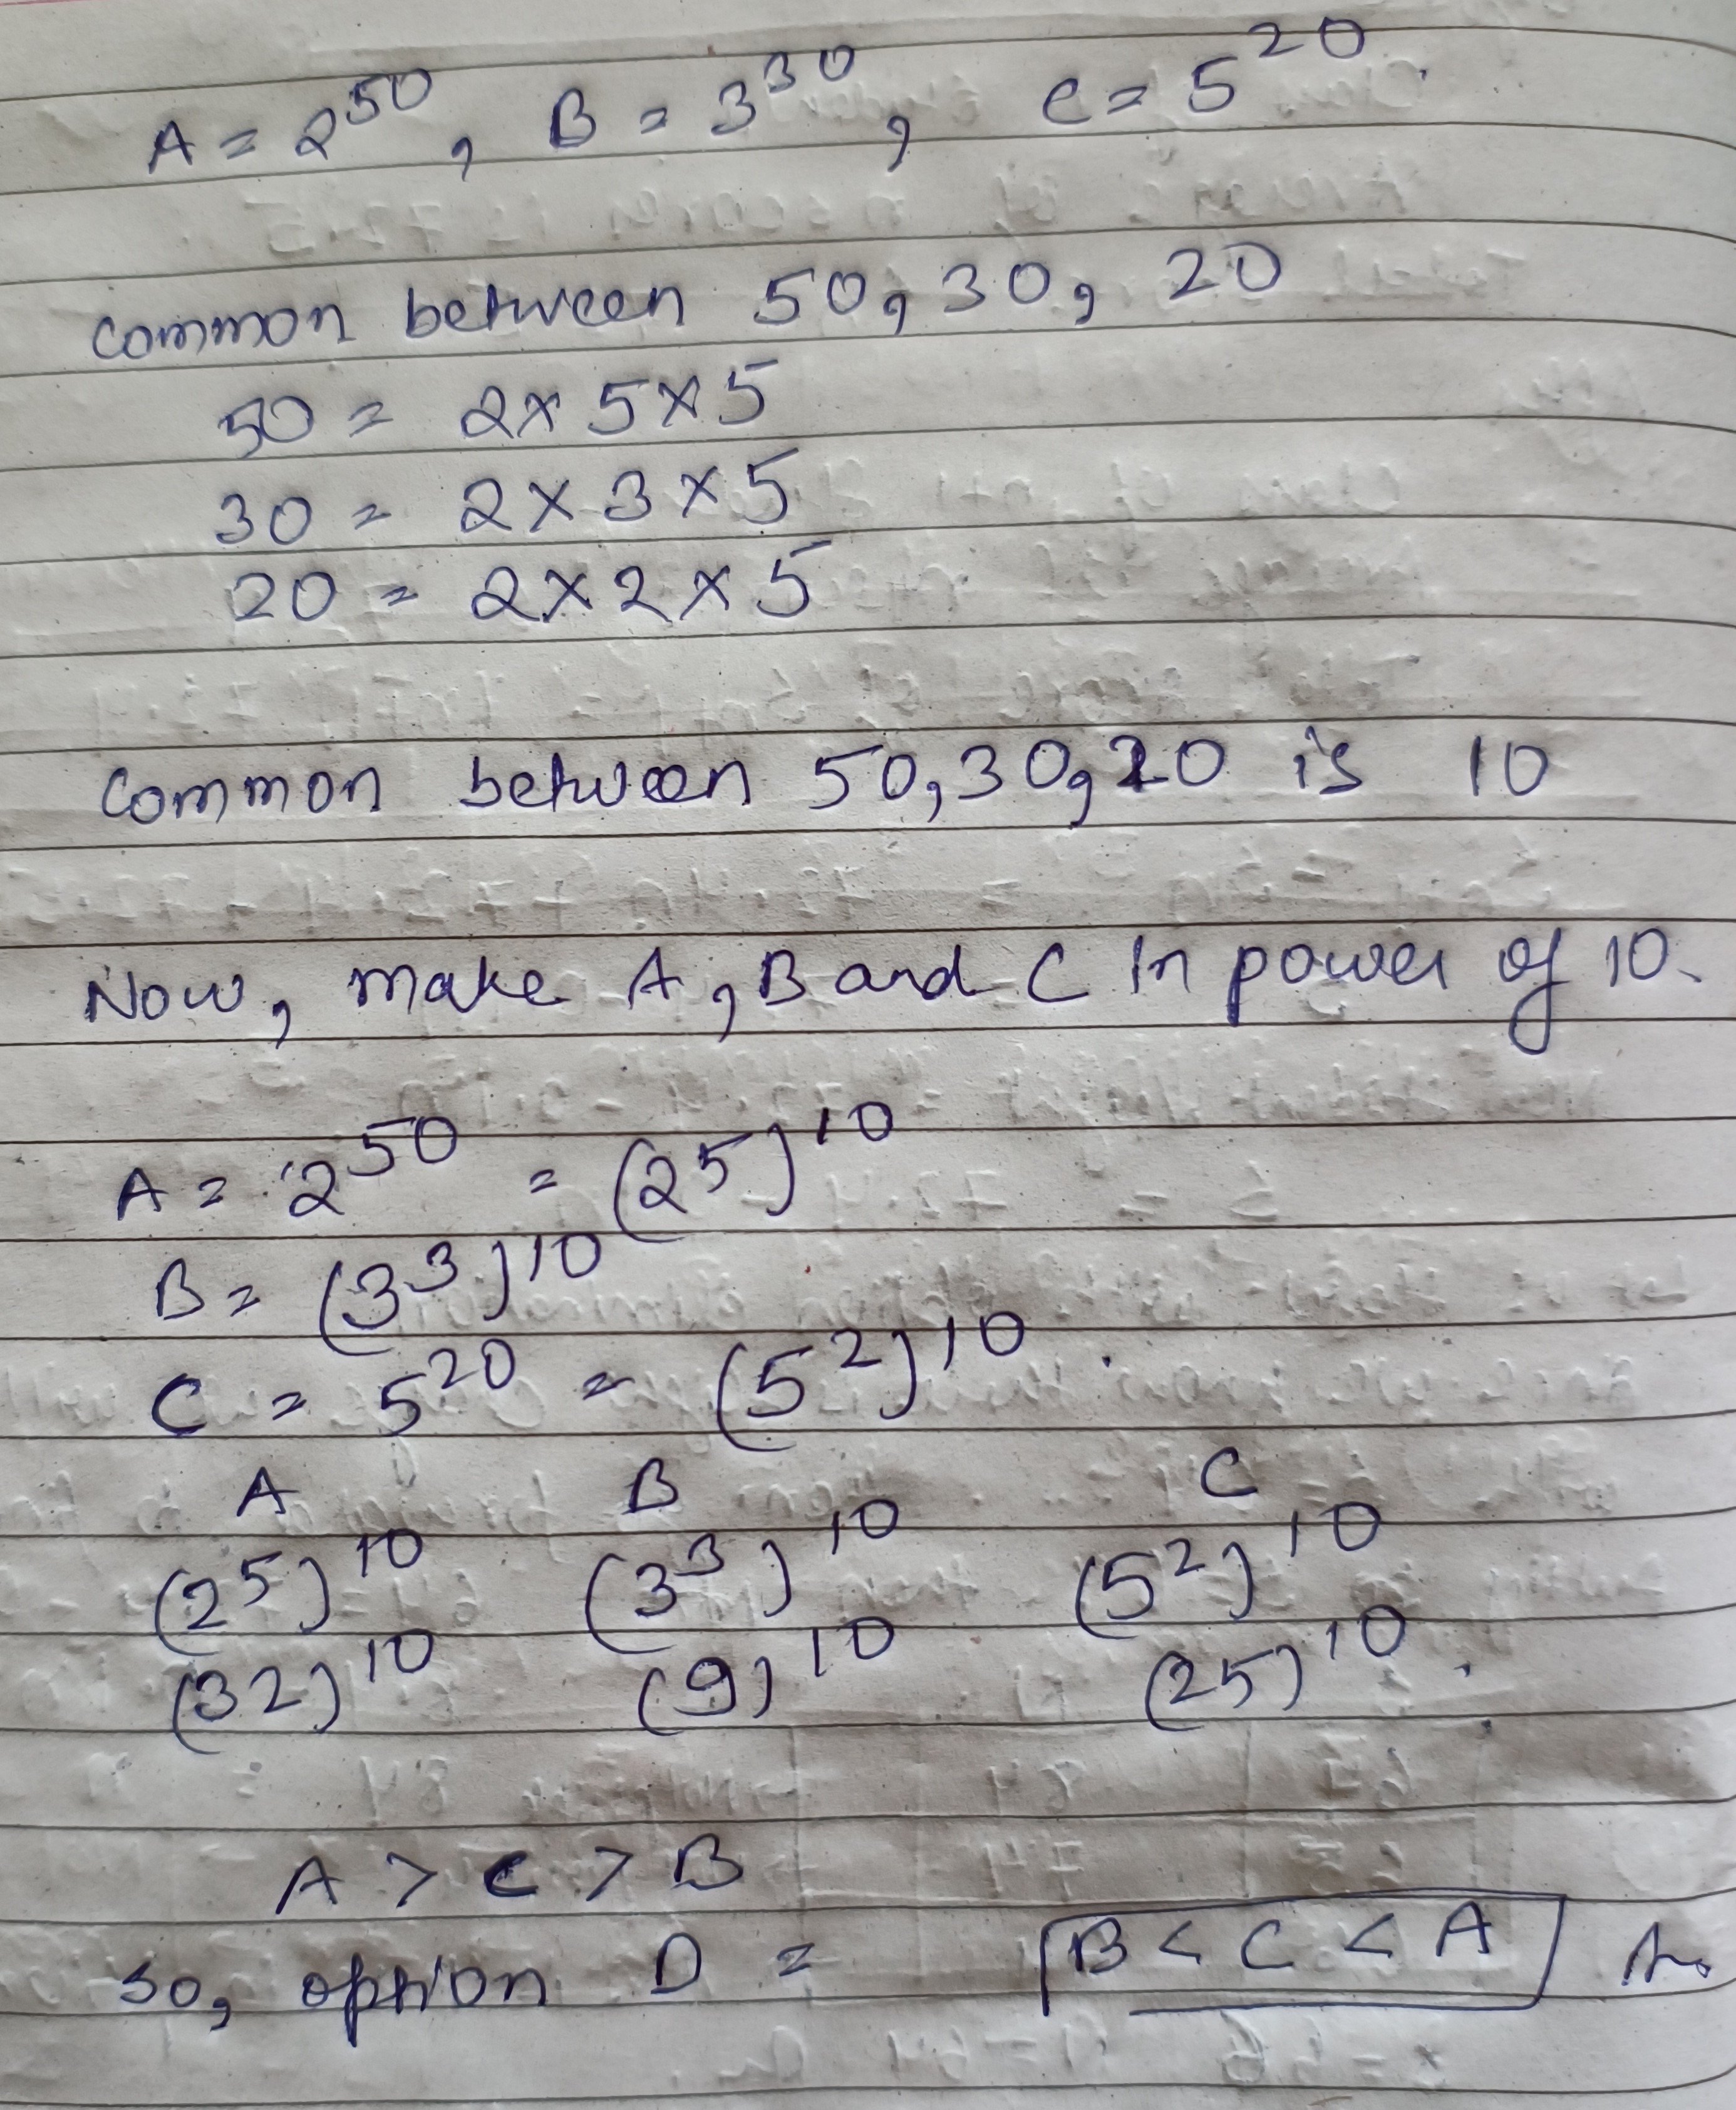 A = 2^50, B = 3^30, C = 5^20.
Common between 50, 30, 20
50 = 2 × 5 × 5
30 = 2 × 3 × 5
20 = 2 × 2 × 5
Common between 50, 30, 20 is 10
Now, make A, B and C in power of 10.
A = 2^50 = (2^5)^10
B = (3^3)^10
C = 5^20 = (5^2)^10.
A B C
(2^5)^10 (3^3)^10 (5^2)^10
(32)^10 (9)^10 (25)^10.
A > C > B
so, option D = B < C < A